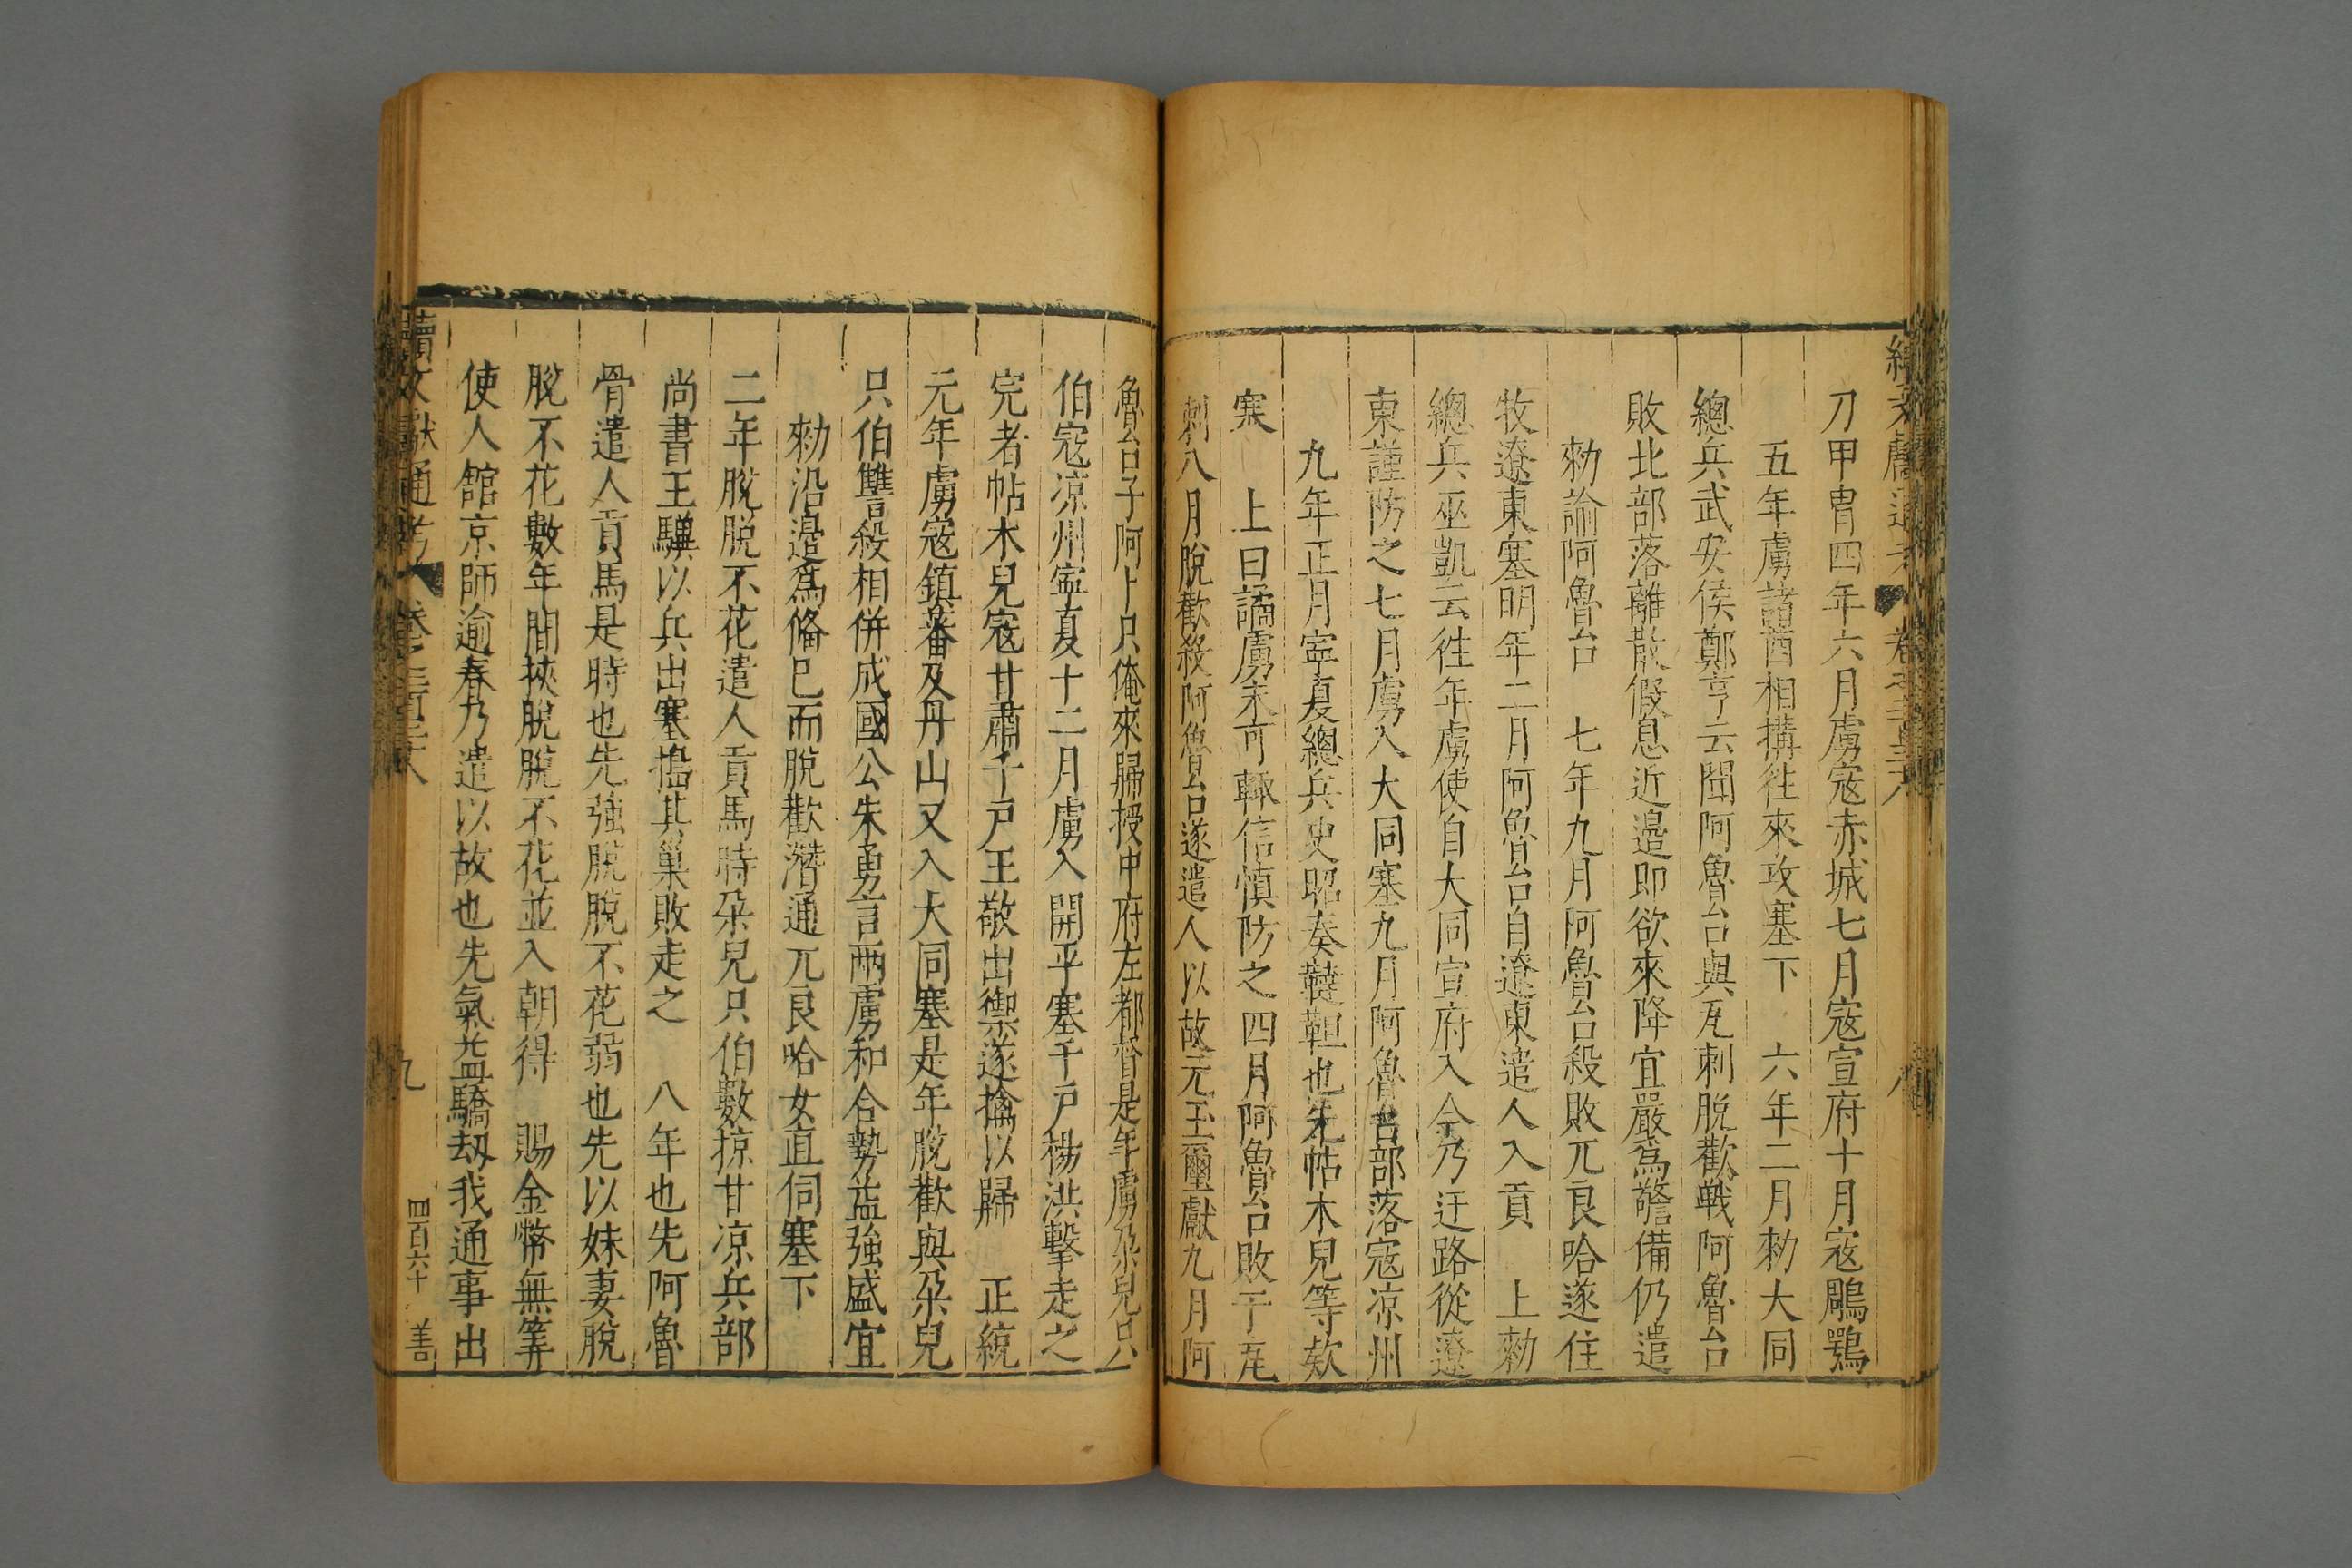 刀甲冑四年六月虜寇赤城七月寇宣府十月寇鵰鶚
五年虜諸酋相搆徃來攻塞下　六年二月勑大同
總兵武安侯鄭亨云聞阿魯台與瓦剌脫歡戰阿魯台
敗北部落離散假息近邉即欲來降宜嚴爲警備仍遣
勑諭阿魯台　七年九月阿魯台殺敗兀良哈遂住
牧遼東塞明年二月阿魯台自遼東遣人入貢　上勑
總兵巫凱云徃年虜使自大同宣府入今乃迂路從遼
東謹防之七月虜入大同塞九月阿魯台部落寇凉州
九年正月寧夏總兵史昭奏韃靼也先帖木兒等欵
寒　上曰譎虜未可輒信慎防之四月阿魯台敗于瓦
剌八月脫歡殺阿魯台遂遣人以故元玉璽獻九月阿
魯台子阿卜只俺來歸授中府左都督是年虜朶兒只
伯寇凉州寧夏十二月虜入開平塞千戶楊洪擊走之
完者帖木兒寇甘肅千戶王敬出禦遂擒以歸　正統
元年虜寇鎮番及丹山又入大同塞是年脫歡與朶兒
只伯讐殺相併成國公朱勇言兩虜和合勢益強盛宜
勑沿邉爲俻已而脫歡潛通兀良哈女直伺塞下
二年脫脫不花遣人貢馬時朶兒只伯數掠甘凉兵部
尚書王驥以兵出塞搗其巢敗走之　八年也先阿魯
骨遣人貢馬是時也先強脫脫不花弱也先以妹妻脫
脫不花數年間挾脫脫不花並入朝得　賜金幣無筭
使人舘京師逾春乃遣以故也先氣益驕刼我通事出
續文獻通考　卷之二百三十八
九
四百六十　善